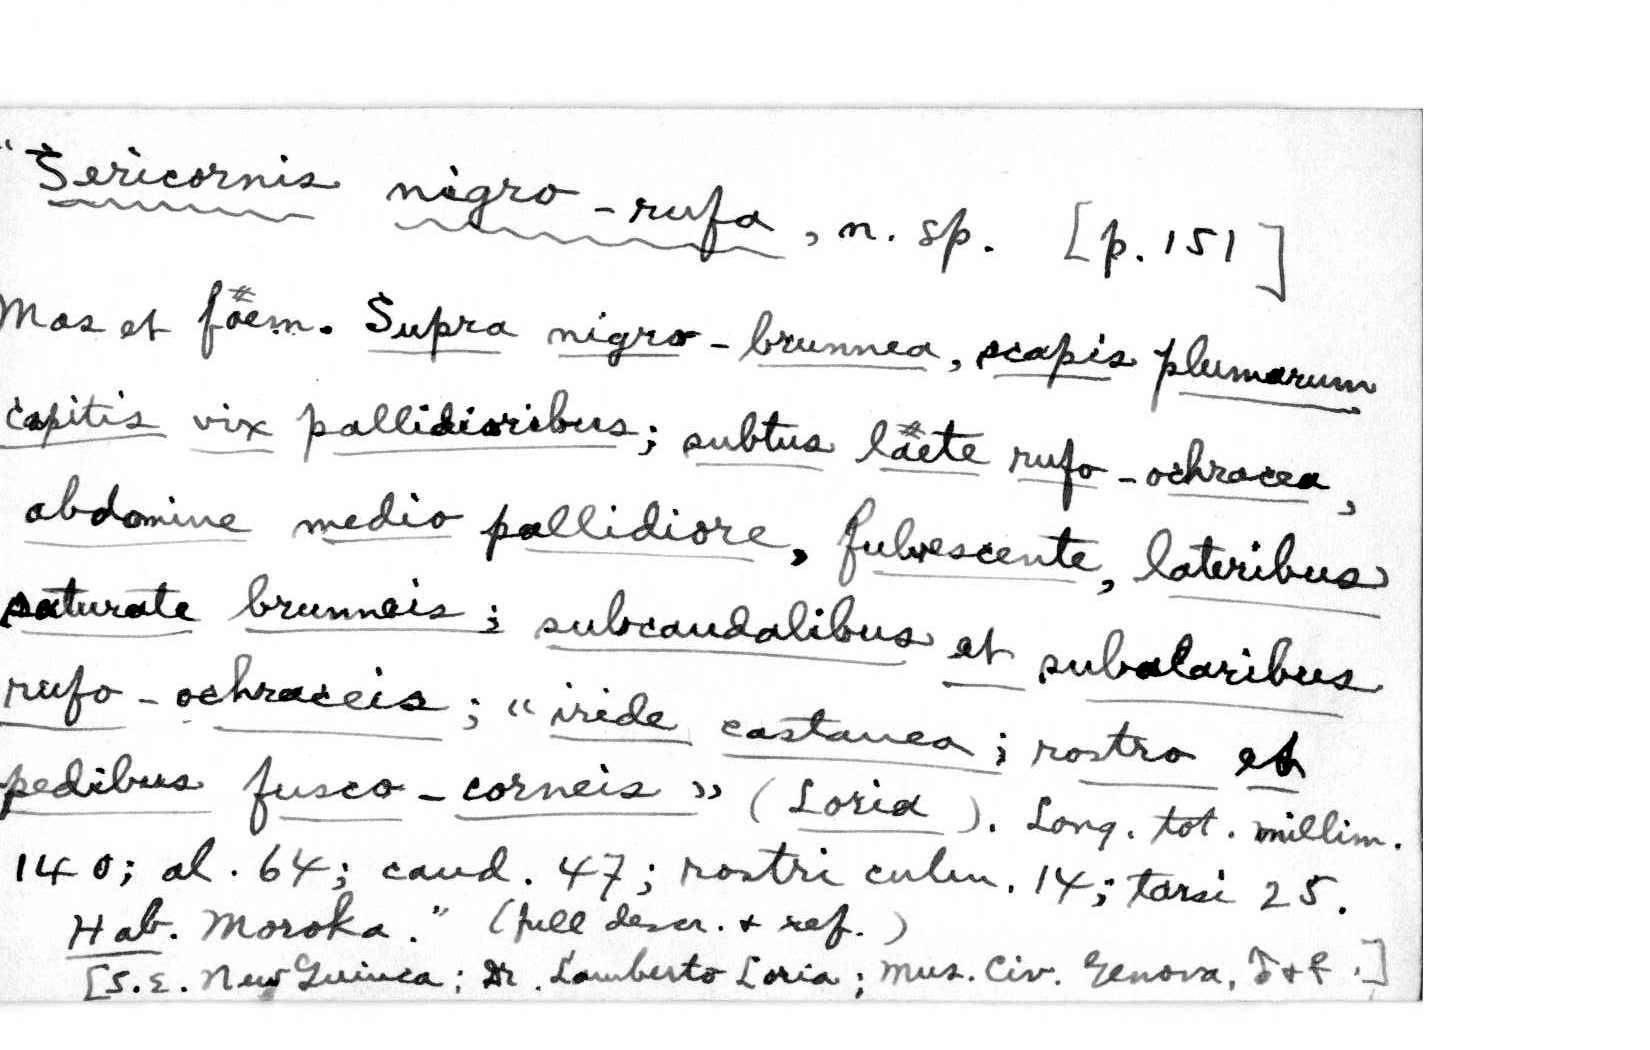 "Sericornis nigro-rufa, n. sp. [p. 151]
Mas et foem. Supra nigro-brunnea, scapis plumarum
capitis vix pallidioribus; subtus laete rufo-ochracea,
abdomine medio pallidiore, fulvescente, lateribus
saturate brunneis; subcaudalibus et subalaribus
rufo-ochraceis; "iride castanea; rostro et
pedibus fusco-corneis" (Loria). Long. tot. millim.
140; al. 64; caud. 47; rostri culm. 14; tarsi 25.
Hab. Moroka." (full descr. & ref.)
[S.E. New Guinea; Dr. Lamberto Loria; Mus. Civ. Genova, ♂ & ♀.]